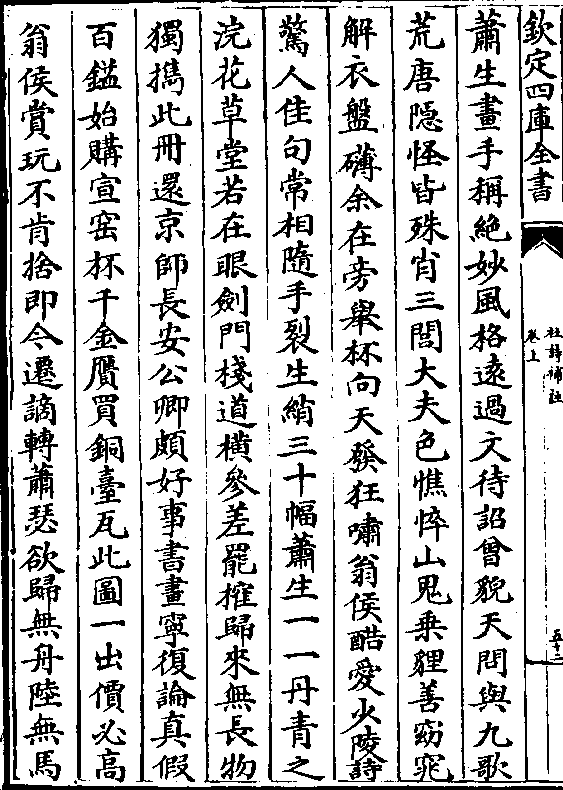 欽定四庫全書
杜詩補註
卷上
五十二
蕭生畫手稱絶妙風格遠過文待詔曾貌天問與九歌
荒唐隠怪皆殊肖三閭大夫色憔悴山鬼乗貍善窈窕
解衣盤礴余在旁舉杯向天發狂嘯翁侯酷愛少陵詩
驚人佳句常相隨手裂生綃三十幅蕭生一一丹青之
浣花草堂若在眼劍門棧道橫參差罷摧歸來無長物
獨攜此冊還京師長安公卿頗好事書畫寧復論真假
百鎰始購宣窑杯千金贗買銅臺瓦此圖一出價必高
翁侯賞玩不肯捨即今遷謫轉蕭瑟欲歸無舟陸無馬